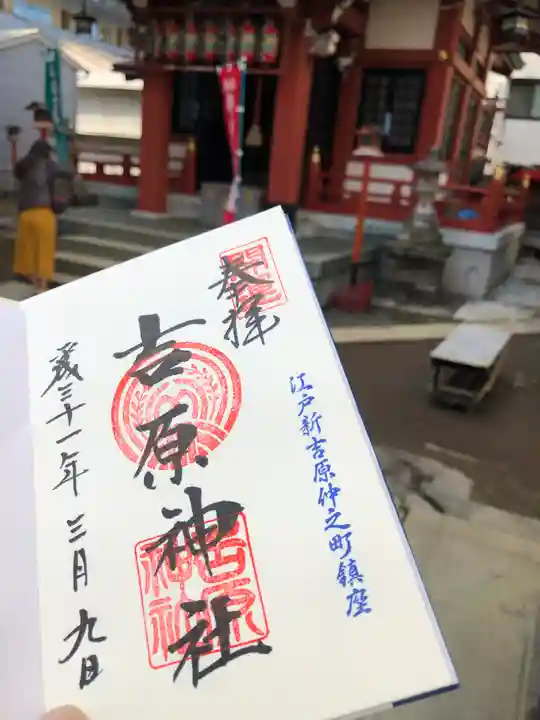 奉拝
江戸新吉原仲之町鎮座
吉原神社
吉原神社
三十一年三月九日